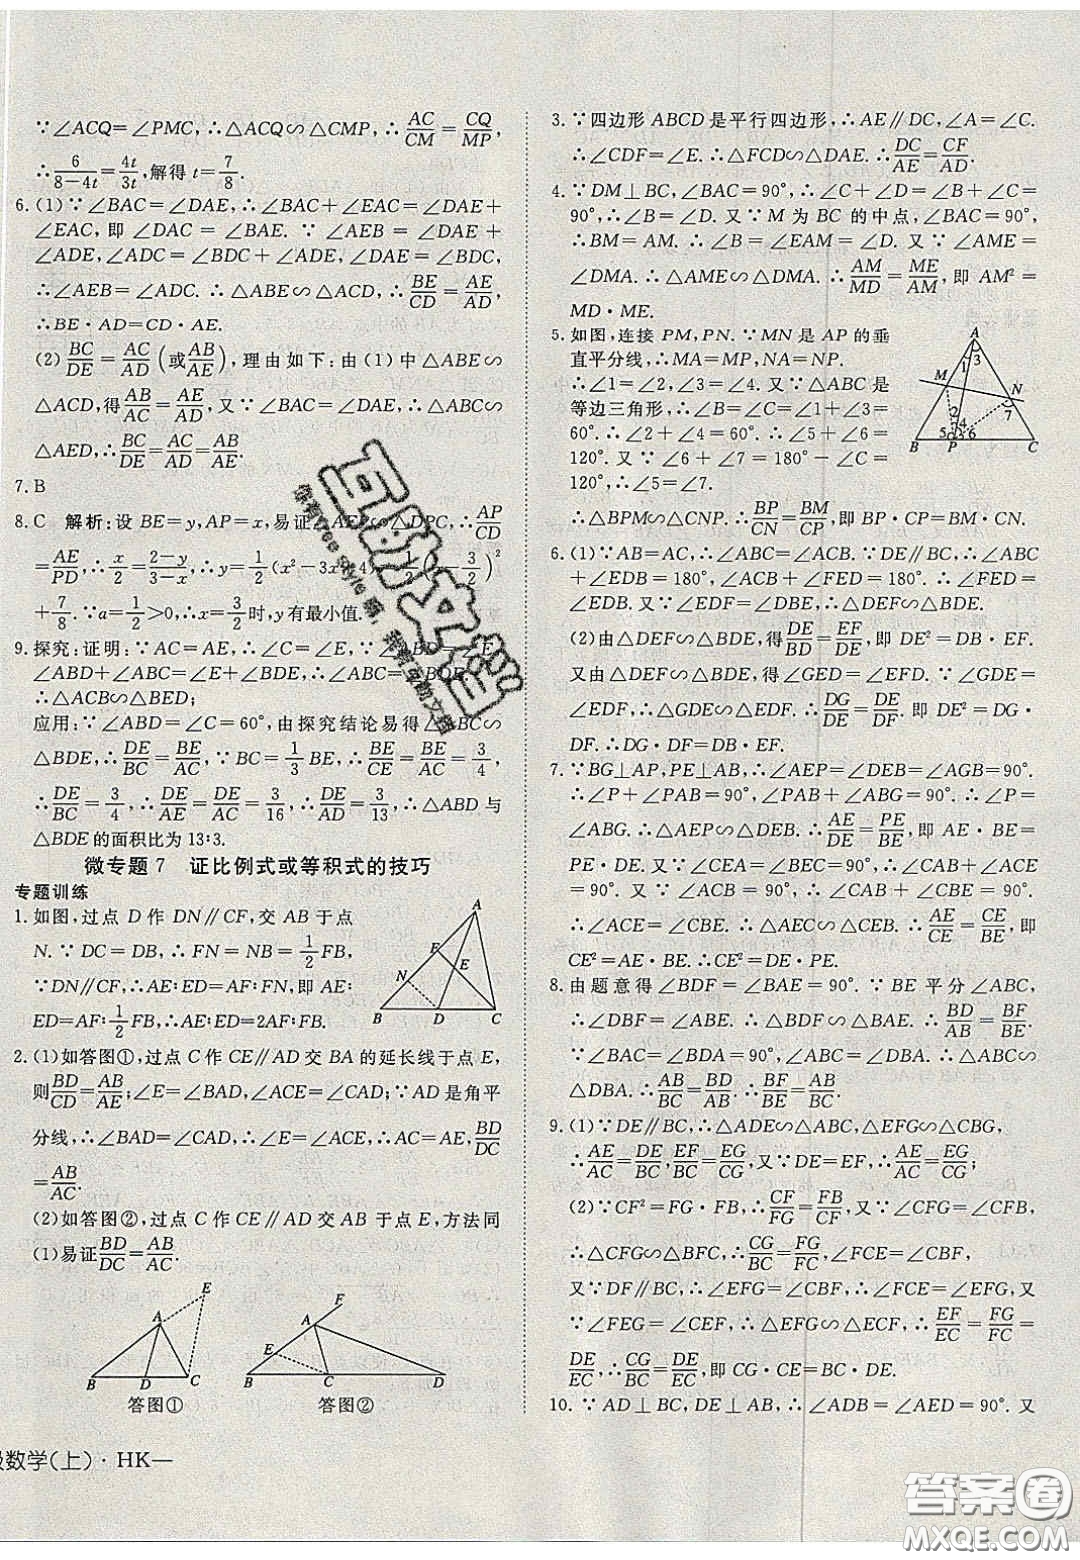 ∵∠ACQ=∠PMC,∴△ACQ∽△CMP,∴AC/CM=CQ/MP.
∴6/(8-4t)=4t/3t,解得 t=7/8.
6. (1)∵∠BAC=∠DAE,∴∠BAC+∠EAC=∠DAE+
∠EAC,即∠DAC=∠BAE. ∵∠AEB=∠DAE+
∠ADE,∠ADC=∠BDC+∠ADE,∠DAE=∠BDC,
∴∠AEB=∠ADC. ∴△ABE∽△ACD,∴BE/CD=AE/AD.
∴BE·AD=CD·AE.
(2)BC/DE=AC/AD(或AB/AE),理由如下:由(1)中△ABE∽
△ACD,得AB/AC=AE/AD,又∵∠BAC=∠DAE,∴△ABC∽
△AED,∴BC/DE=AC/AD=AB/AE.
7. B
8. C 解析:设 BE=y,AP=x,易证△AEP∽△DPC,∴AP/CD
=AE/PD,∴x/2=(2-y)/(3-x),∴y=1/2(x²-3x+4)=1/2(x-3/2)²
+7/8.∵a=1/2>0,∴x=3/2时,y有最小值.
9. 探究:证明:∵AC=AE,∴∠C=∠E,∵∠BAC=∠E,
∠ABD+∠ABC=∠E+∠BDE,∴∠ABC=∠BDE.
∴△ACB∽△BED;
应用:∵∠ABD=∠C=60°,由探究结论易得△ABC∽
△BDE,∴DE/BC=BE/AC,∵BC=1/3BE,∴BE/CE=BE/AC=3/4,
∴DE/BC=3/4,∴DE/AE=DE/AC=3/16,∴DE/AD=3/13,∴△ABD与
△BDE的面积比为13∶3.
微专题7 证比例式或等积式的技巧
专题训练
1. 如图,过点 D 作 DN∥CF,交 AB 于点
N.∵DC=DB,∴FN=NB=1/2FB,
∵DN∥CF,∴AE∶ED=AF∶FN,即 AE∶
ED=AF∶1/2FB,∴AE∶ED=2AF∶FB.
A
F
E
N
B D C
2. (1)如答图①,过点 C 作 CE∥AD 交 BA 的延长线于点 E,
则BD/CD=AB/AE;∠E=∠BAD,∠ACE=∠CAD;∵AD是角平
分线,∴∠BAD=∠CAD,∴∠E=∠ACE,∴AC=AE,BD/DC
=AB/AC.
(2)如答图②,过点 C 作 CE∥AD 交 AB 于点 E,方法同
(1)易证BD/DC=AB/AC.
E
A
B D C
答图①
F
A
E
B C D
答图②
级数学(上)·HK—
3. ∵四边形 ABCD 是平行四边形,∴AE∥DC,∠A=∠C.
∴∠CDF=∠E.∴△FCD∽△DAE.∴DC/AE=CF/AD.
4. ∵DM⊥BC,∠BAC=90°,∴∠C+∠D=∠B+∠C=
90°,∴∠B=∠D. 又∵M 为 BC 的中点,∠BAC=90°,
∴BM=AM. ∴∠B=∠EAM=∠D. 又∵∠AME=
∠DMA. ∴△AME∽△DMA. ∴AM/MD=ME/AM,即 AM²=
MD·ME.
5. 如图,连接 PM,PN. ∵MN 是 AP 的垂
直平分线,∴MA=MP,NA=NP.
∴∠1=∠2,∠3=∠4. 又∵△ABC 是
等边三角形,∴∠B=∠C=∠1+∠3=
60°. ∴∠2+∠4=60°. ∴∠5+∠6=
120°. 又∵∠6+∠7=180°-∠C=
120°,∴∠5=∠7.
∴△BPM∽△CNP. ∴BP/CN=BM/CP,即 BP·CP=BM·CN.
A
1 3
M
N
2 4 7
5 6
B P C
6. (1)∵AB=AC,∴∠ABC=∠ACB. ∵DE∥BC,∴∠ABC
+∠EDB=180°,∠ACB+∠FED=180°. ∴∠FED=
∠EDB. 又∵∠EDF=∠DBE,∴△DEF∽△BDE.
(2)由△DEF∽△BDE,得DE/BD=EF/DE,即 DE²=DB·EF.
又由△DEF∽△BDE,得∠GED=∠EFD. ∵∠GDE=
∠EDF,∴△GDE∽△EDF. ∴DG/DE=DE/DF. 即 DE²=DG·
DF. ∴DG·DF=DB·EF.
7. ∵BG⊥AP,PE⊥AB,∴∠AEP=∠DEB=∠AGB=90°.
∴∠P+∠PAB=90°,∠PAB+∠ABG=90°. ∴∠P=
∠ABG. ∴△AEP∽△DEB. ∴AE/DE=PE/BE,即 AE·BE=
PE·DE. 又∵CE⊥AB,∴∠CEA=∠BEC=90°,∴∠CAB
+∠ACE=90°. 又∵∠ACB=90°,∴∠CAB+∠CBE=90°.
∴∠ACE=∠CBE. ∴△AEC∽△CEB. ∴AE/CE=CE/BE,即
CE²=AE·BE. ∴CE²=DE·PE.
8. 由题意得∠BDF=∠BAE=90°. ∵BE 平分∠ABC,
∴∠DBF=∠ABE. ∴△BDF∽△BAE. ∴BD/AB=BF/BE.
∵∠BAC=∠BDA=90°,∠ABC=∠DBA. ∴△ABC∽
△DBA. ∴AB/BC=BD/AB. ∴BF/BE=AB/BC.
9. (1)∵DE∥BC,∴△ADE∽△ABC,△EFG∽△CBG,
∴AE/AC=DE/BC,EF/BC=EG/CG,又∵DE=EF,∴AE/AC=EG/CG;
(2)∵CF²=FG·FB,∴CF/FG=FB/CF,又∵∠CFG=∠CFB,
∴△CFG∽△BFC,∴CG/BC=FG/FC,∠FCE=∠CBF,
又∵DF∥BC,∴∠EFG=∠CBF,∴∠FCE=∠EFG,又
∵∠FEG=∠CEF,∴△EFG∽△ECF,∴EF/EC=FG/FC=
DE/EC,∴CG/BC=DE/EC,即 CG·CE=BC·DE.
10. ∵AD⊥BC,DE⊥AB,∴∠ADB=∠AED=90°. 又
答案圈
MXQE.COM